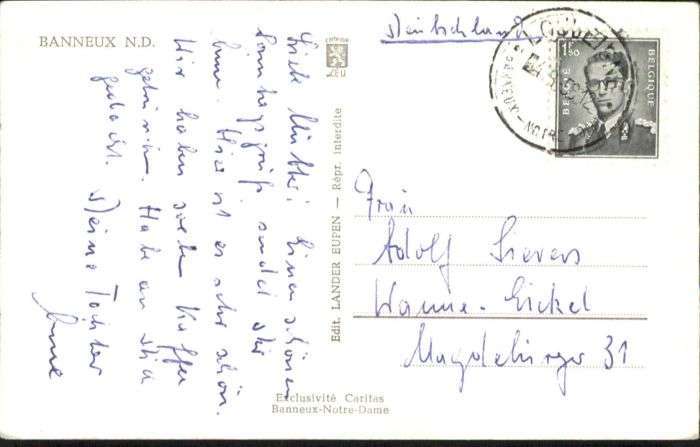 BANNEUX N.D.
Liebe Mutti, Einen schönen
Sonntagsgruß sendet Dir
Anne. Hier ist es sehr schön.
Wir haben soeben Kaffee
getrunken. Habe an Dich
gedacht. Deine Tochter
Anne
LANDER
EUPEN
Edit. LANDER EUPEN — Répr. interdite
Deutschland
BELGIE
BELGIQUE
1F50
Frau
Adolf Sievers
Wanne-Eickel
Magdeburger 31
Exclusivité Caritas
Banneux-Notre-Dame